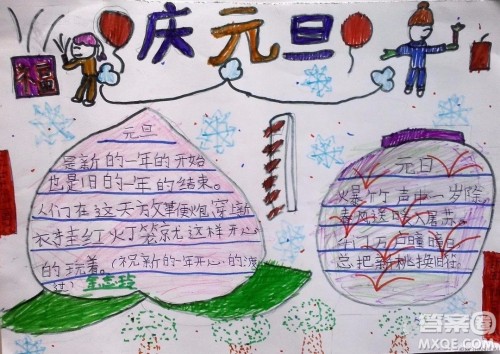 庆元旦
福
元旦
是新的一年的开始
也是旧的一年的结束。
人们在这天放鞭炮穿新
衣挂红灯笼就这样开心
的玩着。(祝新的一年开心的度
过)
元旦
爆竹声中一岁除
春风送暖入屠苏
千门万户曈曈日
总把新桃换旧符
答案圈
MXQE.COM